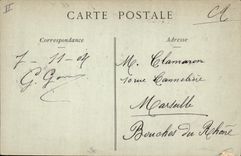 CARTE POSTALE
Correspondance
Adresse
7-11-04
M. Clamaron
10 rue Cannebière
Marseille
Bouches du Rhône